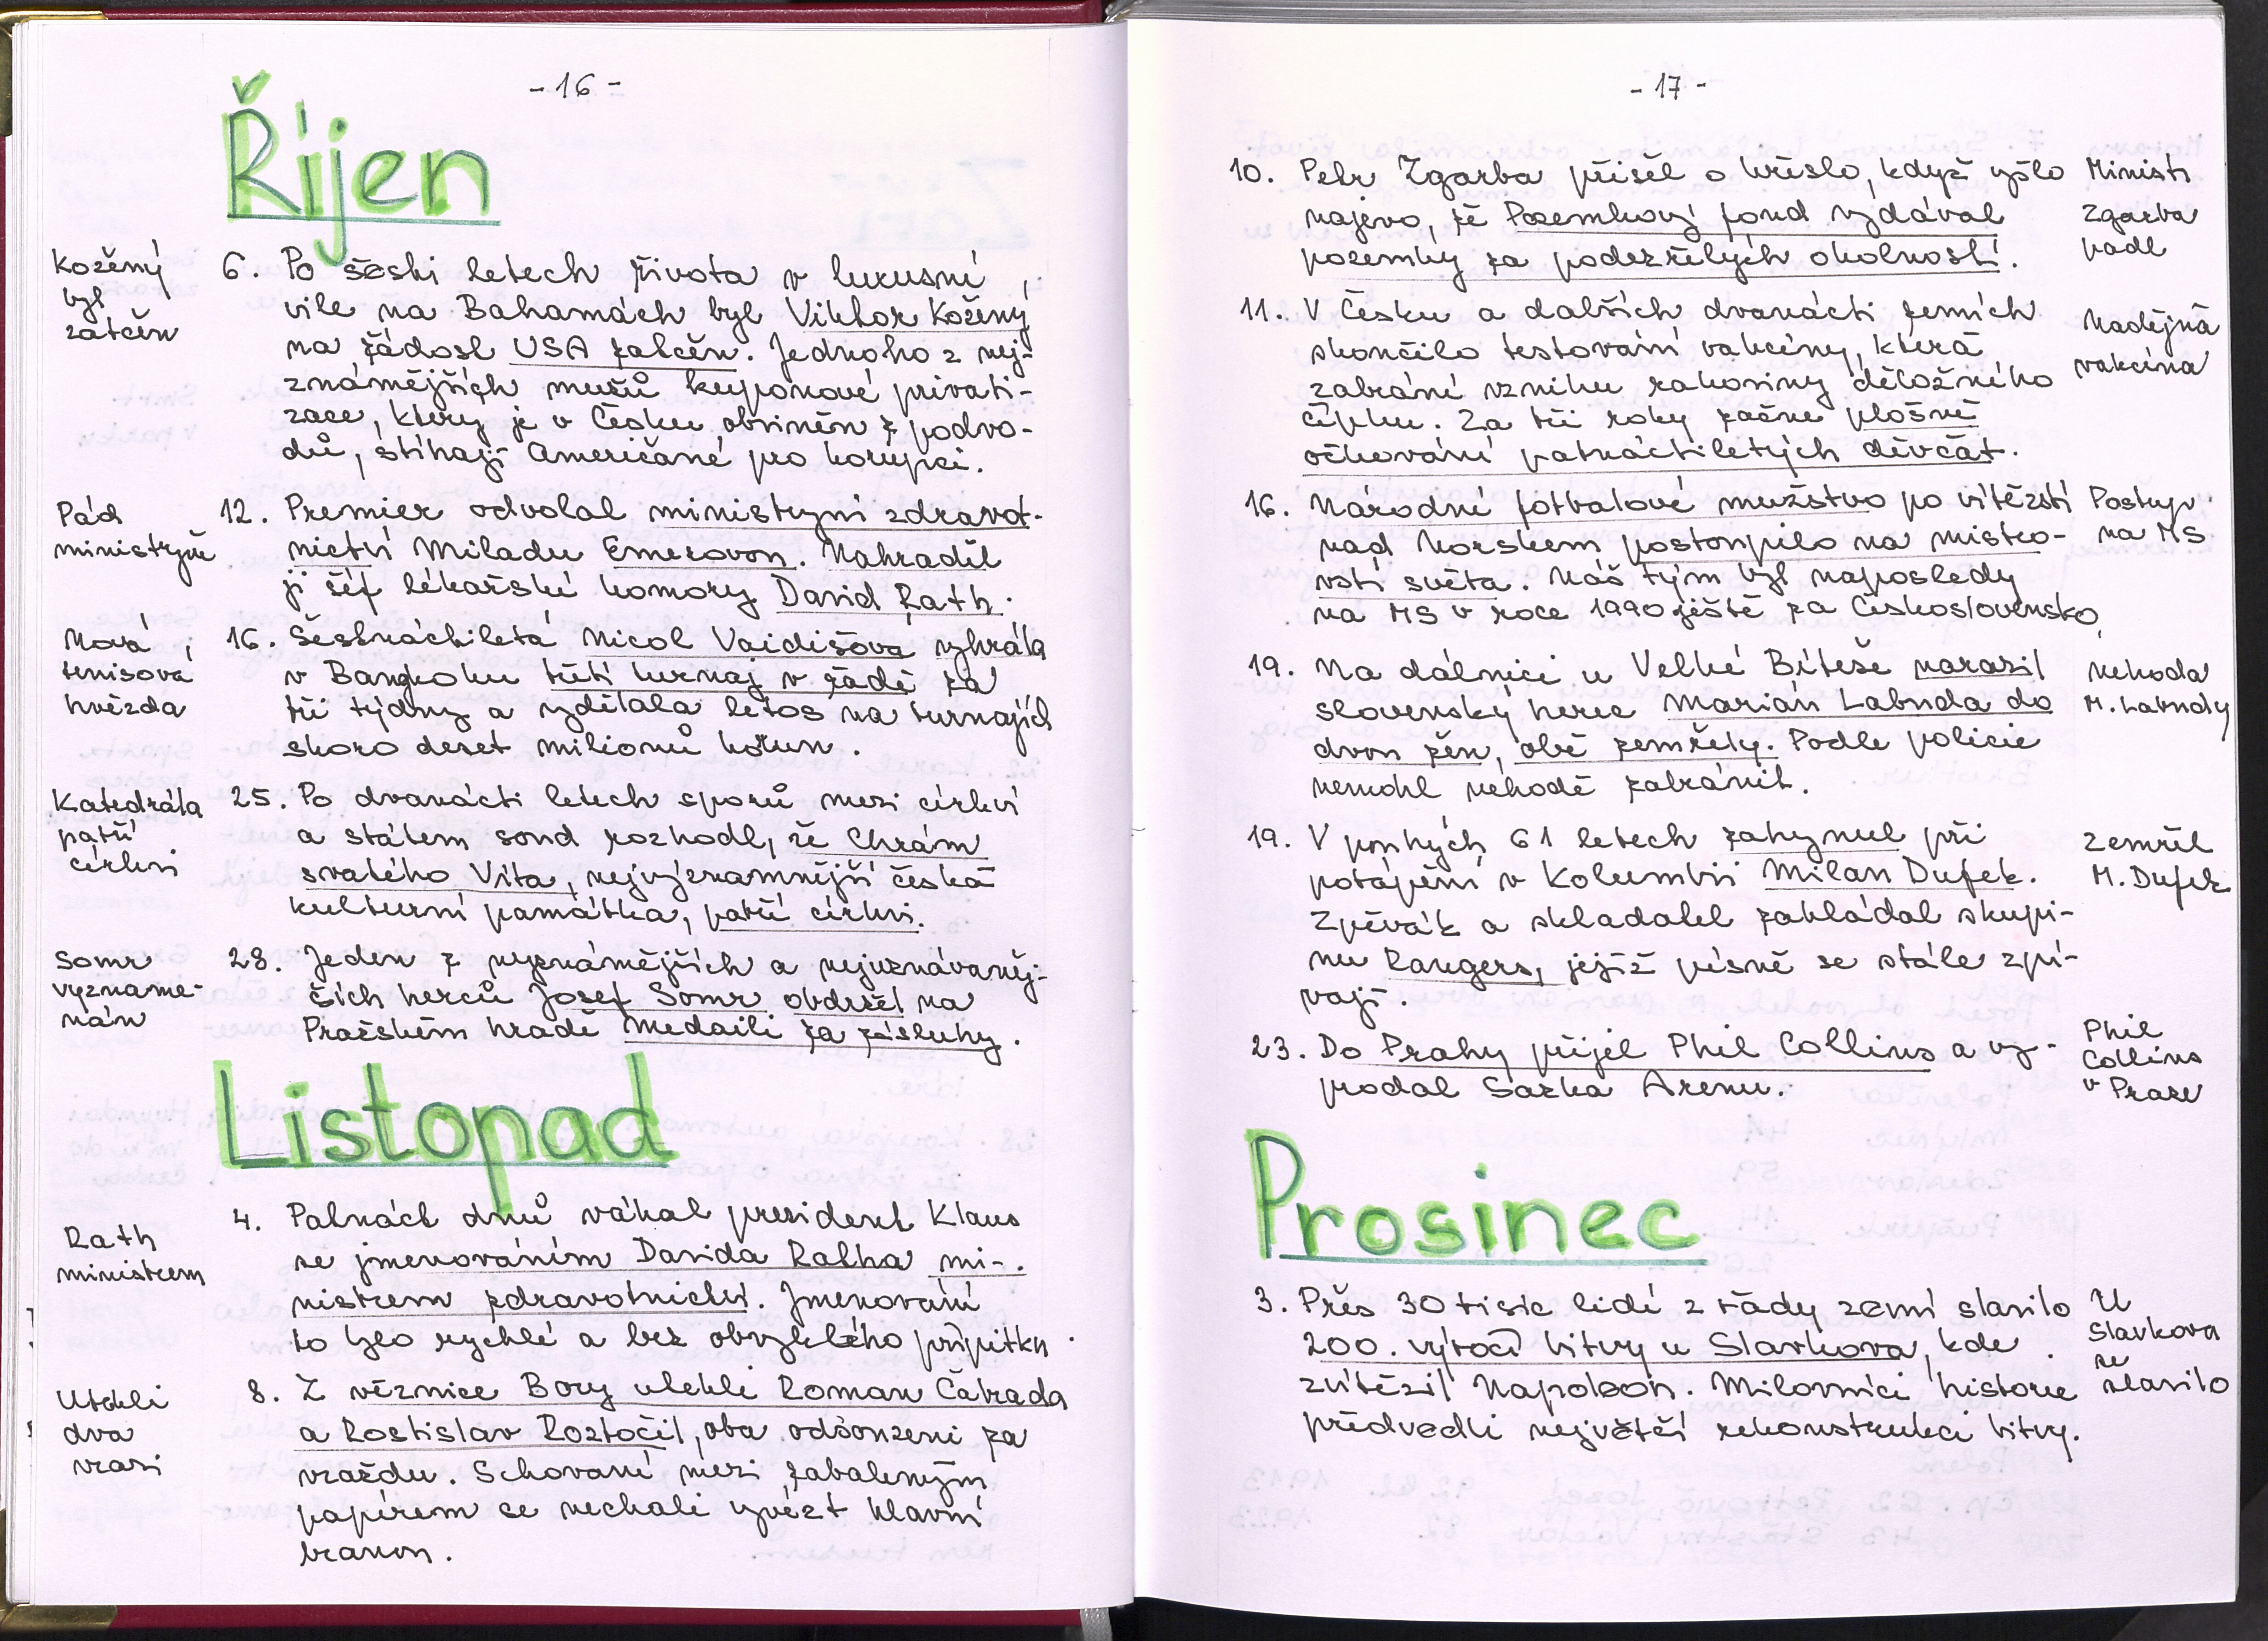 - 16 -
Říjen
Kožený
byl
zatčen
6. Po šesti letech života v luxusní
vile na Bahamách byl Viktor Kožený
na žádost USA zatčen. Jednoho z nej-
známějších mužů kuponové privati-
zace, který je v Česku obviněn z podvo-
dů, stíhají Američané pro korupci.
Pád
ministryně
12. Premier odvolal ministryni zdravot-
nictví Miladu Emerovou. Nahradil
ji šéf lékařské komory David Rath.
Nová
tenisová
hvězda
16. Šestnáctiletá Nicol Vaidišová vyhrála
v Bangkoku třetí turnaj v řadě za
tři týdny a vydělala letos na turnajích
skoro deset milionů korun.
Katedrála
patří
církvi
25. Po dvanácti letech sporů mezi církví
a státem soud rozhodl, že Chrám
svatého Víta, nejvýznamnější česká
kulturní památka, patří církvi.
Somr
vyzname-
nán
28. Jeden z nejznámějších a nejuznávaněj-
ších herců Josef Somr obdržel na
Pražském hradě medaili za zásluhy.
Listopad
Rath
ministrem
4. Patnáct dnů váhal president Klaus
se jmenováním Davida Ratha mi-
nistrem zdravotnictví. Jmenování
to bylo rychlé a bez obvyklého přípitku.
Utekli
dva
vrazi
8. Z věznice Bory utekli Roman Čabrada
a Rostislav Roztočil, oba odsouzeni za
vraždu. Schovaní mezi zabaleným
papírem se nechali vyvézt hlavní
branou.
- 17 -
10. Petr Zgarba přišel o křeslo, když vyšlo
najevo, že Pozemkový fond vydával
pozemky za podezřelých okolností.
Ministr
Zgarba
padl
11. V Česku a dalších dvanácti zemích
skončilo testování vakcíny, která
zabrání vzniku rakoviny děložného
čípku. Za tři roky začne plošné
očkování patnáctiletých děvčat.
Nadějná
vakcína
16. Národní fotbalové mužstvo po vítězství
nad Norskem postoupilo na mistro-
vství světa. Náš tým byl naposledy
na MS v roce 1990 ještě za Československo.
Postup
na MS
19. Na dálnici u Velké Bíteše narazil
slovenský herec Marián Labuda do
dvou žen, obě zemřely. Podle policie
nemohl nehodě zabránit.
Nehoda
M. Labudy
19. V pouhých 61 letech zahynul při
potápění v Kolumbii Milan Dufek.
Zpěvák a skladatel zakládal skupi-
nu Rangers, jejíž písně se stále zpí-
vají.
Zemřel
M. Dufek
23. Do Prahy přijel Phil Collins a vy-
prodal Sazka Arenu.
Phil
Collins
v Praze
Prosinec
3. Přes 30 tisíc lidí z řady zemí slavilo
200. výročí bitvy u Slavkova, kde
zvítězil Napoleon. Milovníci historie
předvedli největší rekonstrukci bitvy.
U
Slavkova
se
slavilo